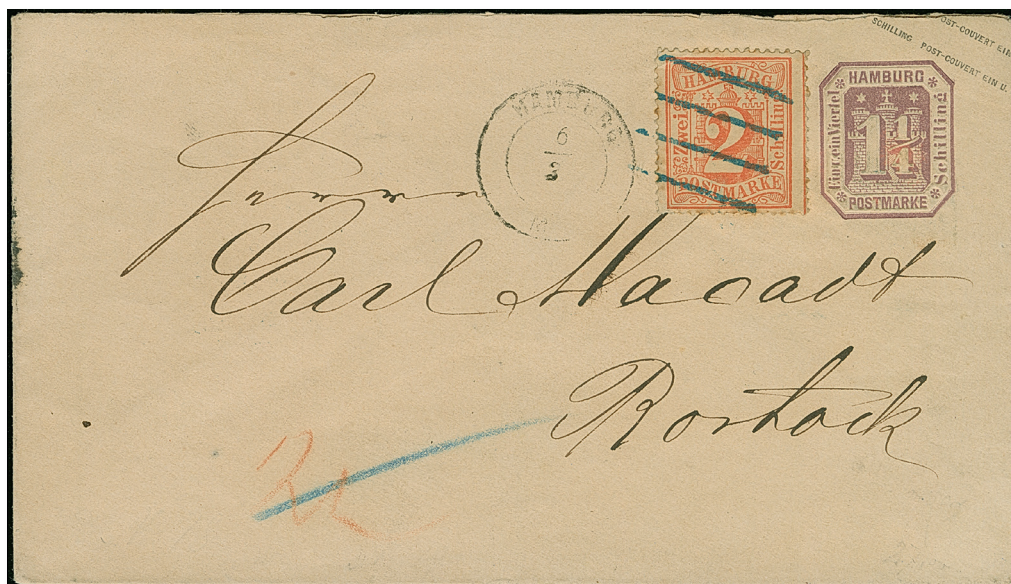 OST-COUVERT EIN
SCHILLING POST-COUVERT EIN U.
HAMBURG
Zwei 2 Schilling
POSTMARKE
HAMBURG
Ein ein Viertel 1 1/4 Schilling
POSTMARKE
HAMBURG
6
Herrn
Carl Macadt
Rostock